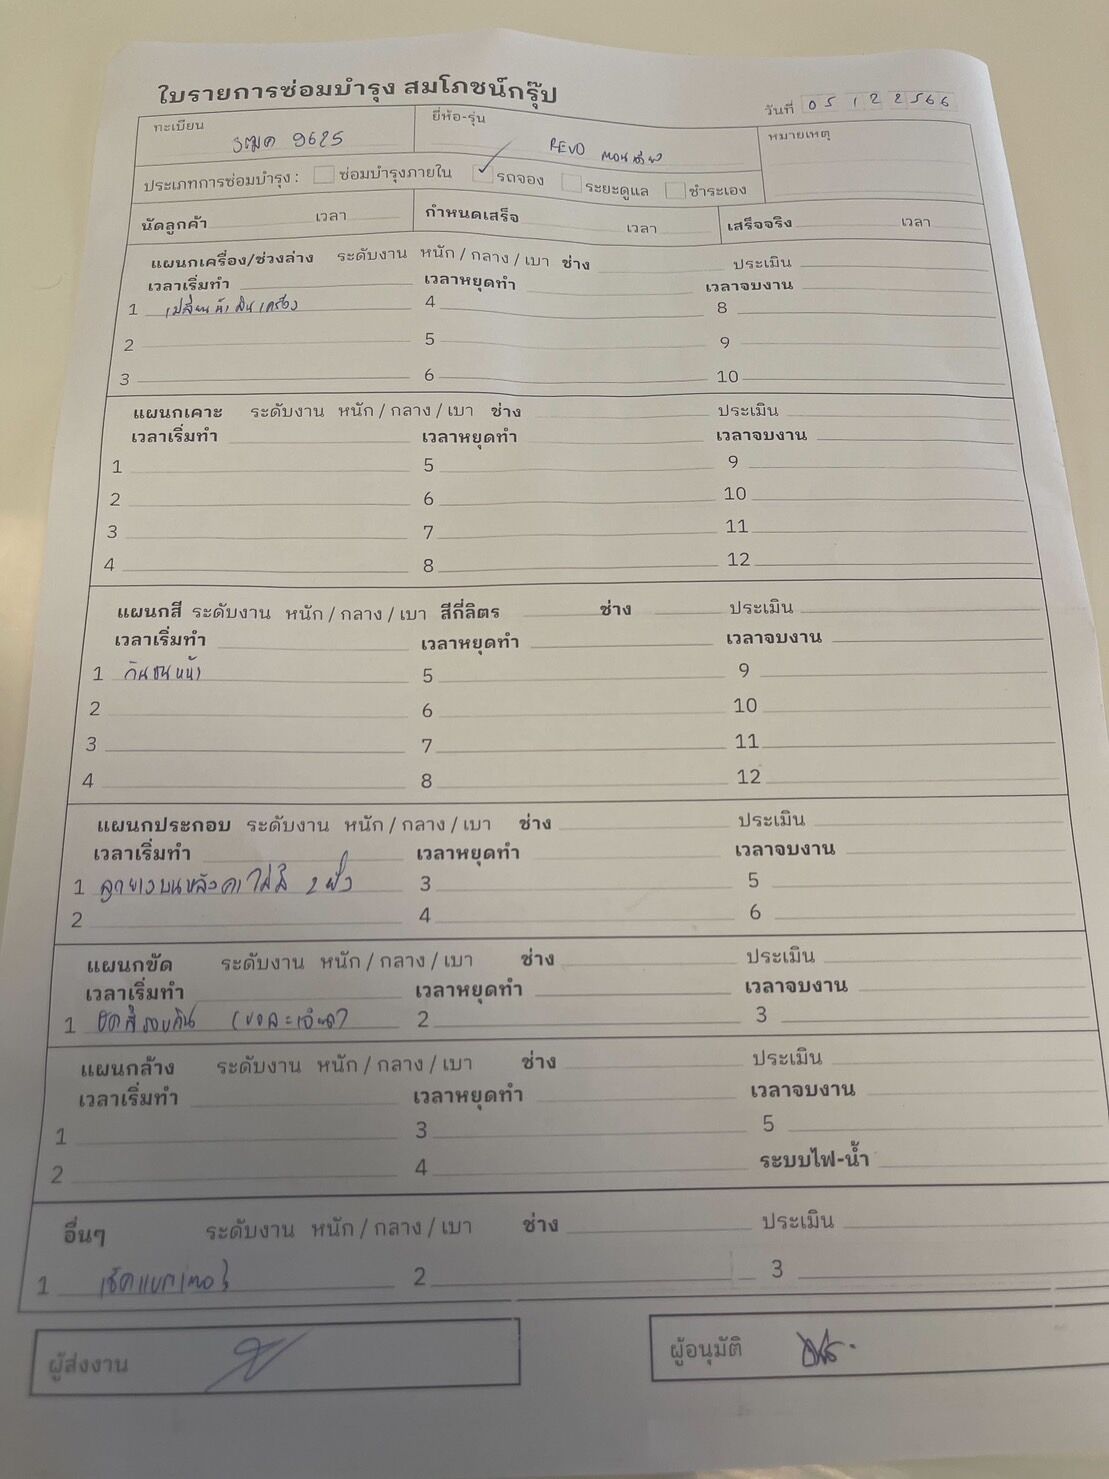 ใบรายการซ่อมบำรุง สมโภชน์กรุ๊ป
วันที่ 05 12 2566
ทะเบียน 9625
ยี่ห้อ-รุ่น REVO ตอนเดียว
หมายเหตุ
ประเภทการซ่อมบำรุง : ซ่อมบำรุงภายใน ✓ รถจอง ระยะดูแล ชำระเอง
นัดลูกค้า เวลา กำหนดเสร็จ เวลา เสร็จจริง เวลา
แผนกเครื่อง/ช่วงล่าง ระดับงาน หนัก / กลาง / เบา ช่าง ประเมิน
เวลาเริ่มทำ เวลาหยุดทำ เวลาจบงาน
1 เปลี่ยนน้ำมันเครื่อง 4 8
2 5 9
3 6 10
แผนกเคาะ ระดับงาน หนัก / กลาง / เบา ช่าง ประเมิน
เวลาเริ่มทำ เวลาหยุดทำ เวลาจบงาน
1 5 9
2 6 10
3 7 11
4 8 12
แผนกสี ระดับงาน หนัก / กลาง / เบา สีกี่ลิตร ช่าง ประเมิน
เวลาเริ่มทำ เวลาหยุดทำ เวลาจบงาน
1 กันชนหน้า 5 9
2 6 10
3 7 11
4 8 12
แผนกประกอบ ระดับงาน หนัก / กลาง / เบา ช่าง ประเมิน
เวลาเริ่มทำ เวลาหยุดทำ เวลาจบงาน
1 บนหลังคา 2 ฝั่ง 3 5
2 4 6
แผนกขัด ระดับงาน หนัก / กลาง / เบา ช่าง ประเมิน
เวลาเริ่มทำ เวลาหยุดทำ เวลาจบงาน
1 ขัดสีรอบคัน (ขอละเอียด) 2 3
แผนกล้าง ระดับงาน หนัก / กลาง / เบา ช่าง ประเมิน
เวลาเริ่มทำ เวลาหยุดทำ เวลาจบงาน
1 3 5
2 4 ระบบไฟ-น้ำ
อื่นๆ ระดับงาน หนัก / กลาง / เบา ช่าง ประเมิน
1 เช็คแบตเตอรี่ 2 3
ผู้ส่งงาน ผู้อนุมัติ